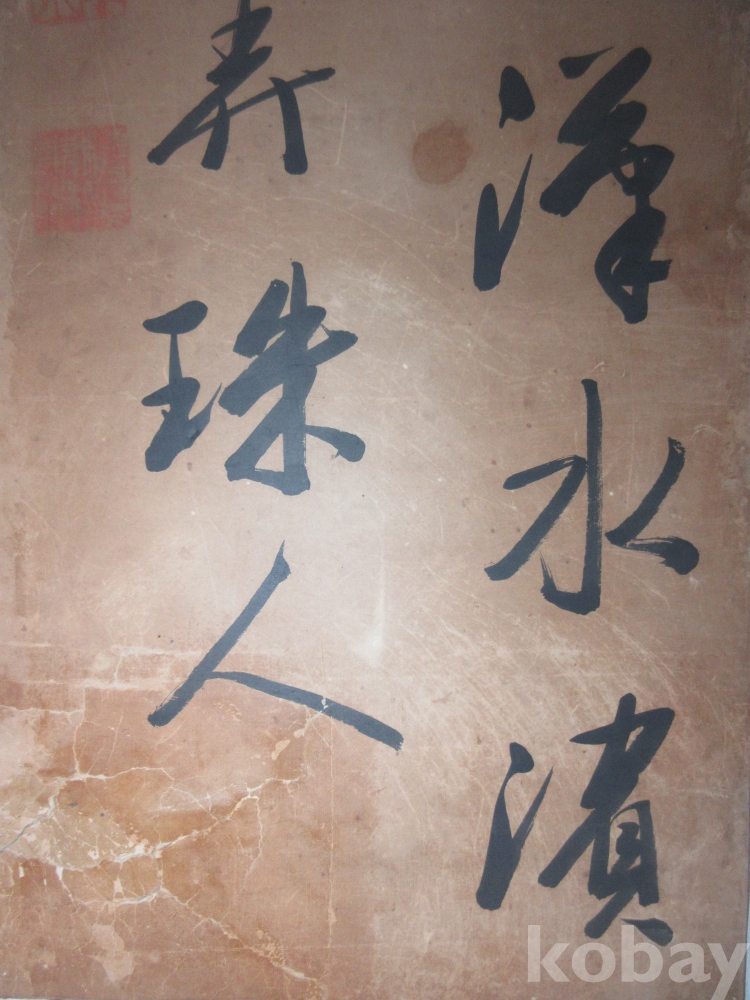 漢水濱
弄珠人
kobay